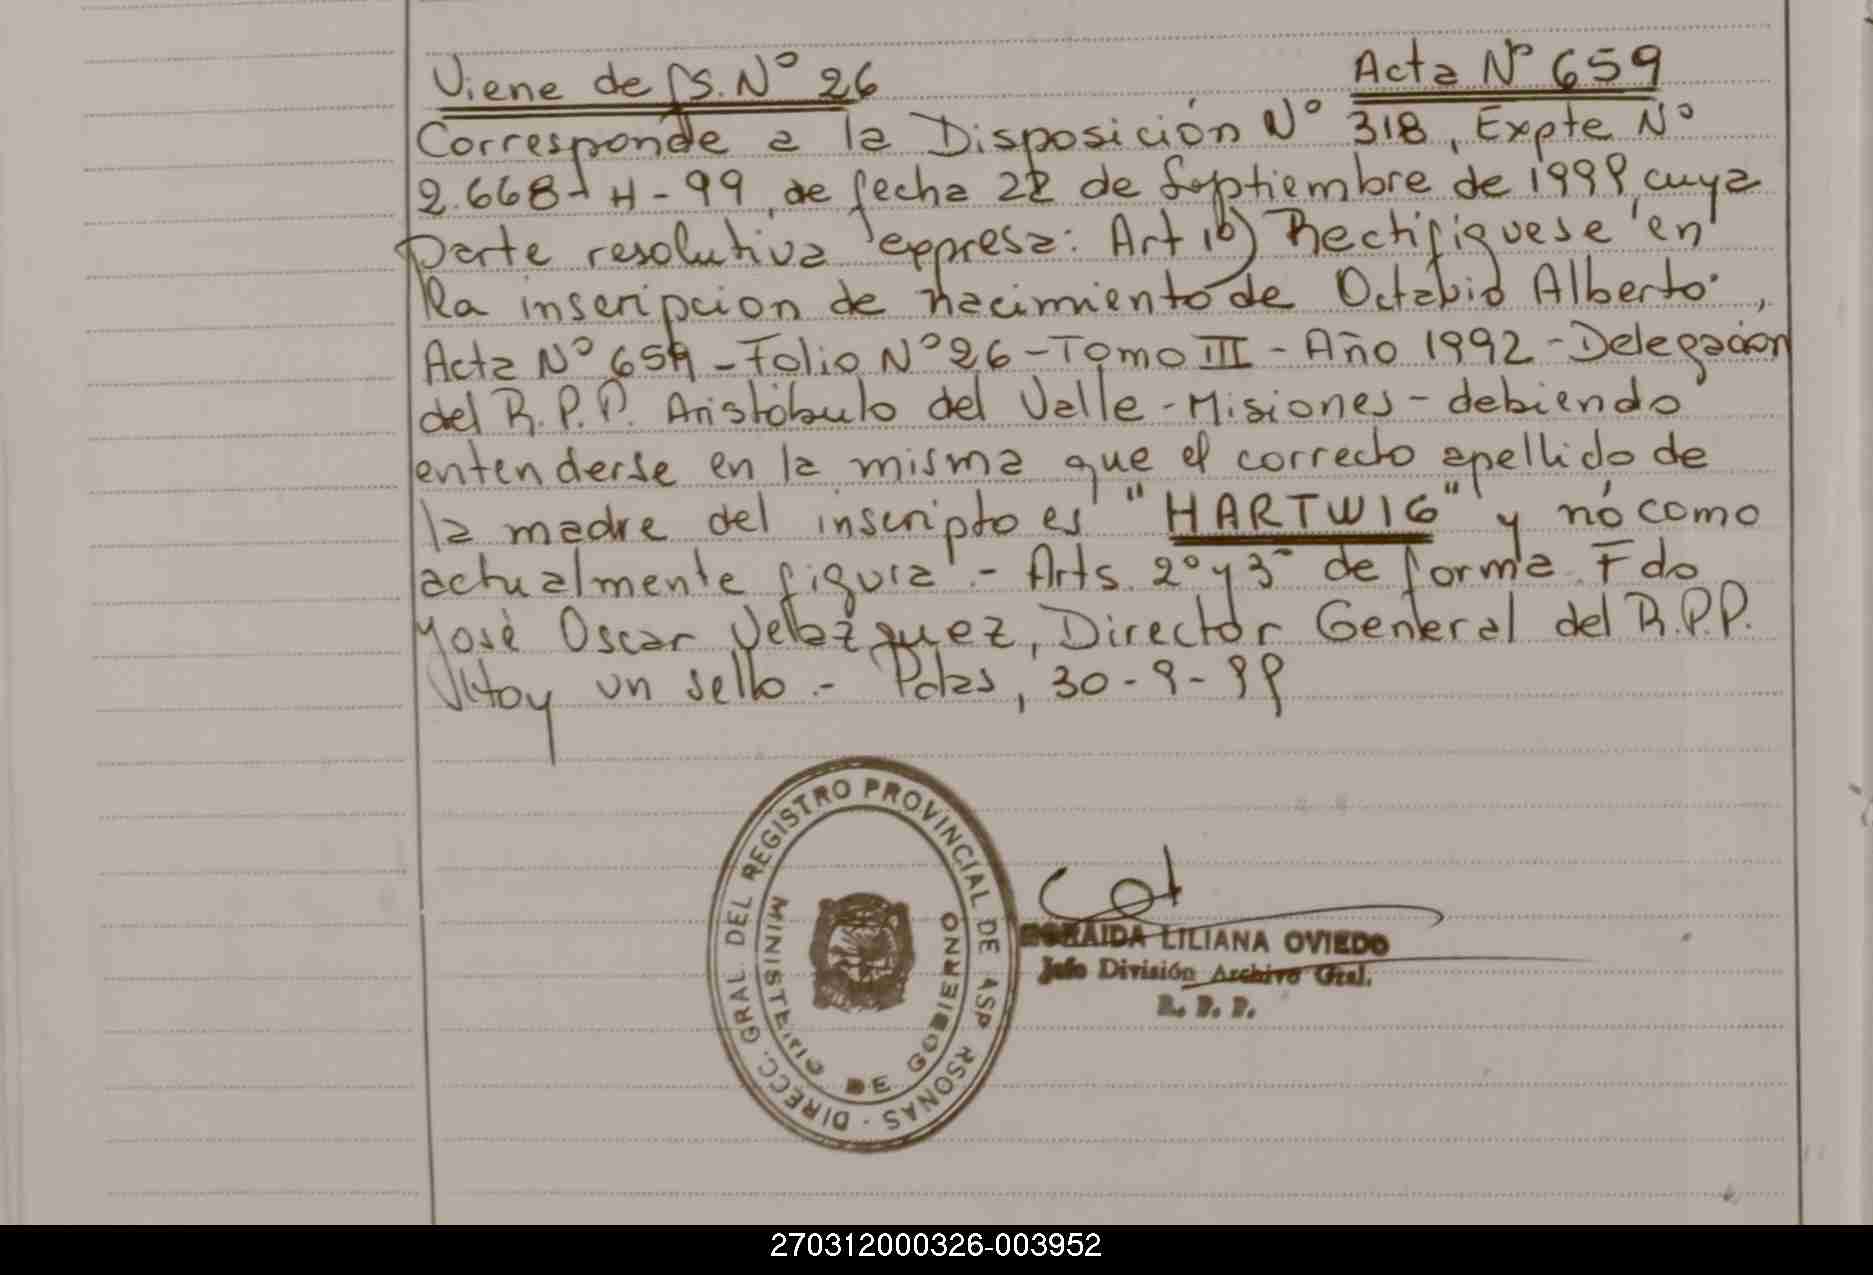 Viene de fs. Nº 26
Acta Nº 659
Corresponde a la Disposición Nº 318, Expte Nº
2.668-H-99, de fecha 22 de Septiembre de 1999, cuya
parte resolutiva expresa: Art 1º) Rectifiquese en
la inscripcion de nacimiento de Octabio Alberto,
Acta Nº 659 - Folio Nº 26 - Tomo III - Año 1992 - Delegación
del R.P.P. Aristóbulo del Valle - Misiones - debiendo
entenderse en la misma que el correcto apellido de
la madre del inscripto es "HARTWIG" y nó como
actualmente figura.- Arts. 2º y 3º de forma. Fdo
José Oscar Velazquez, Director General del R.P.P.
Hay un sello.- Pdas, 30-9-99
DIRECC. GRAL. DEL REGISTRO PROVINCIAL DE AS P RSONAS -
MINISTERIO DE GOBIERNO
ZORAIDA LILIANA OVIEDO
Jefe División Archivo Gral.
R. P. P.
270312000326-003952